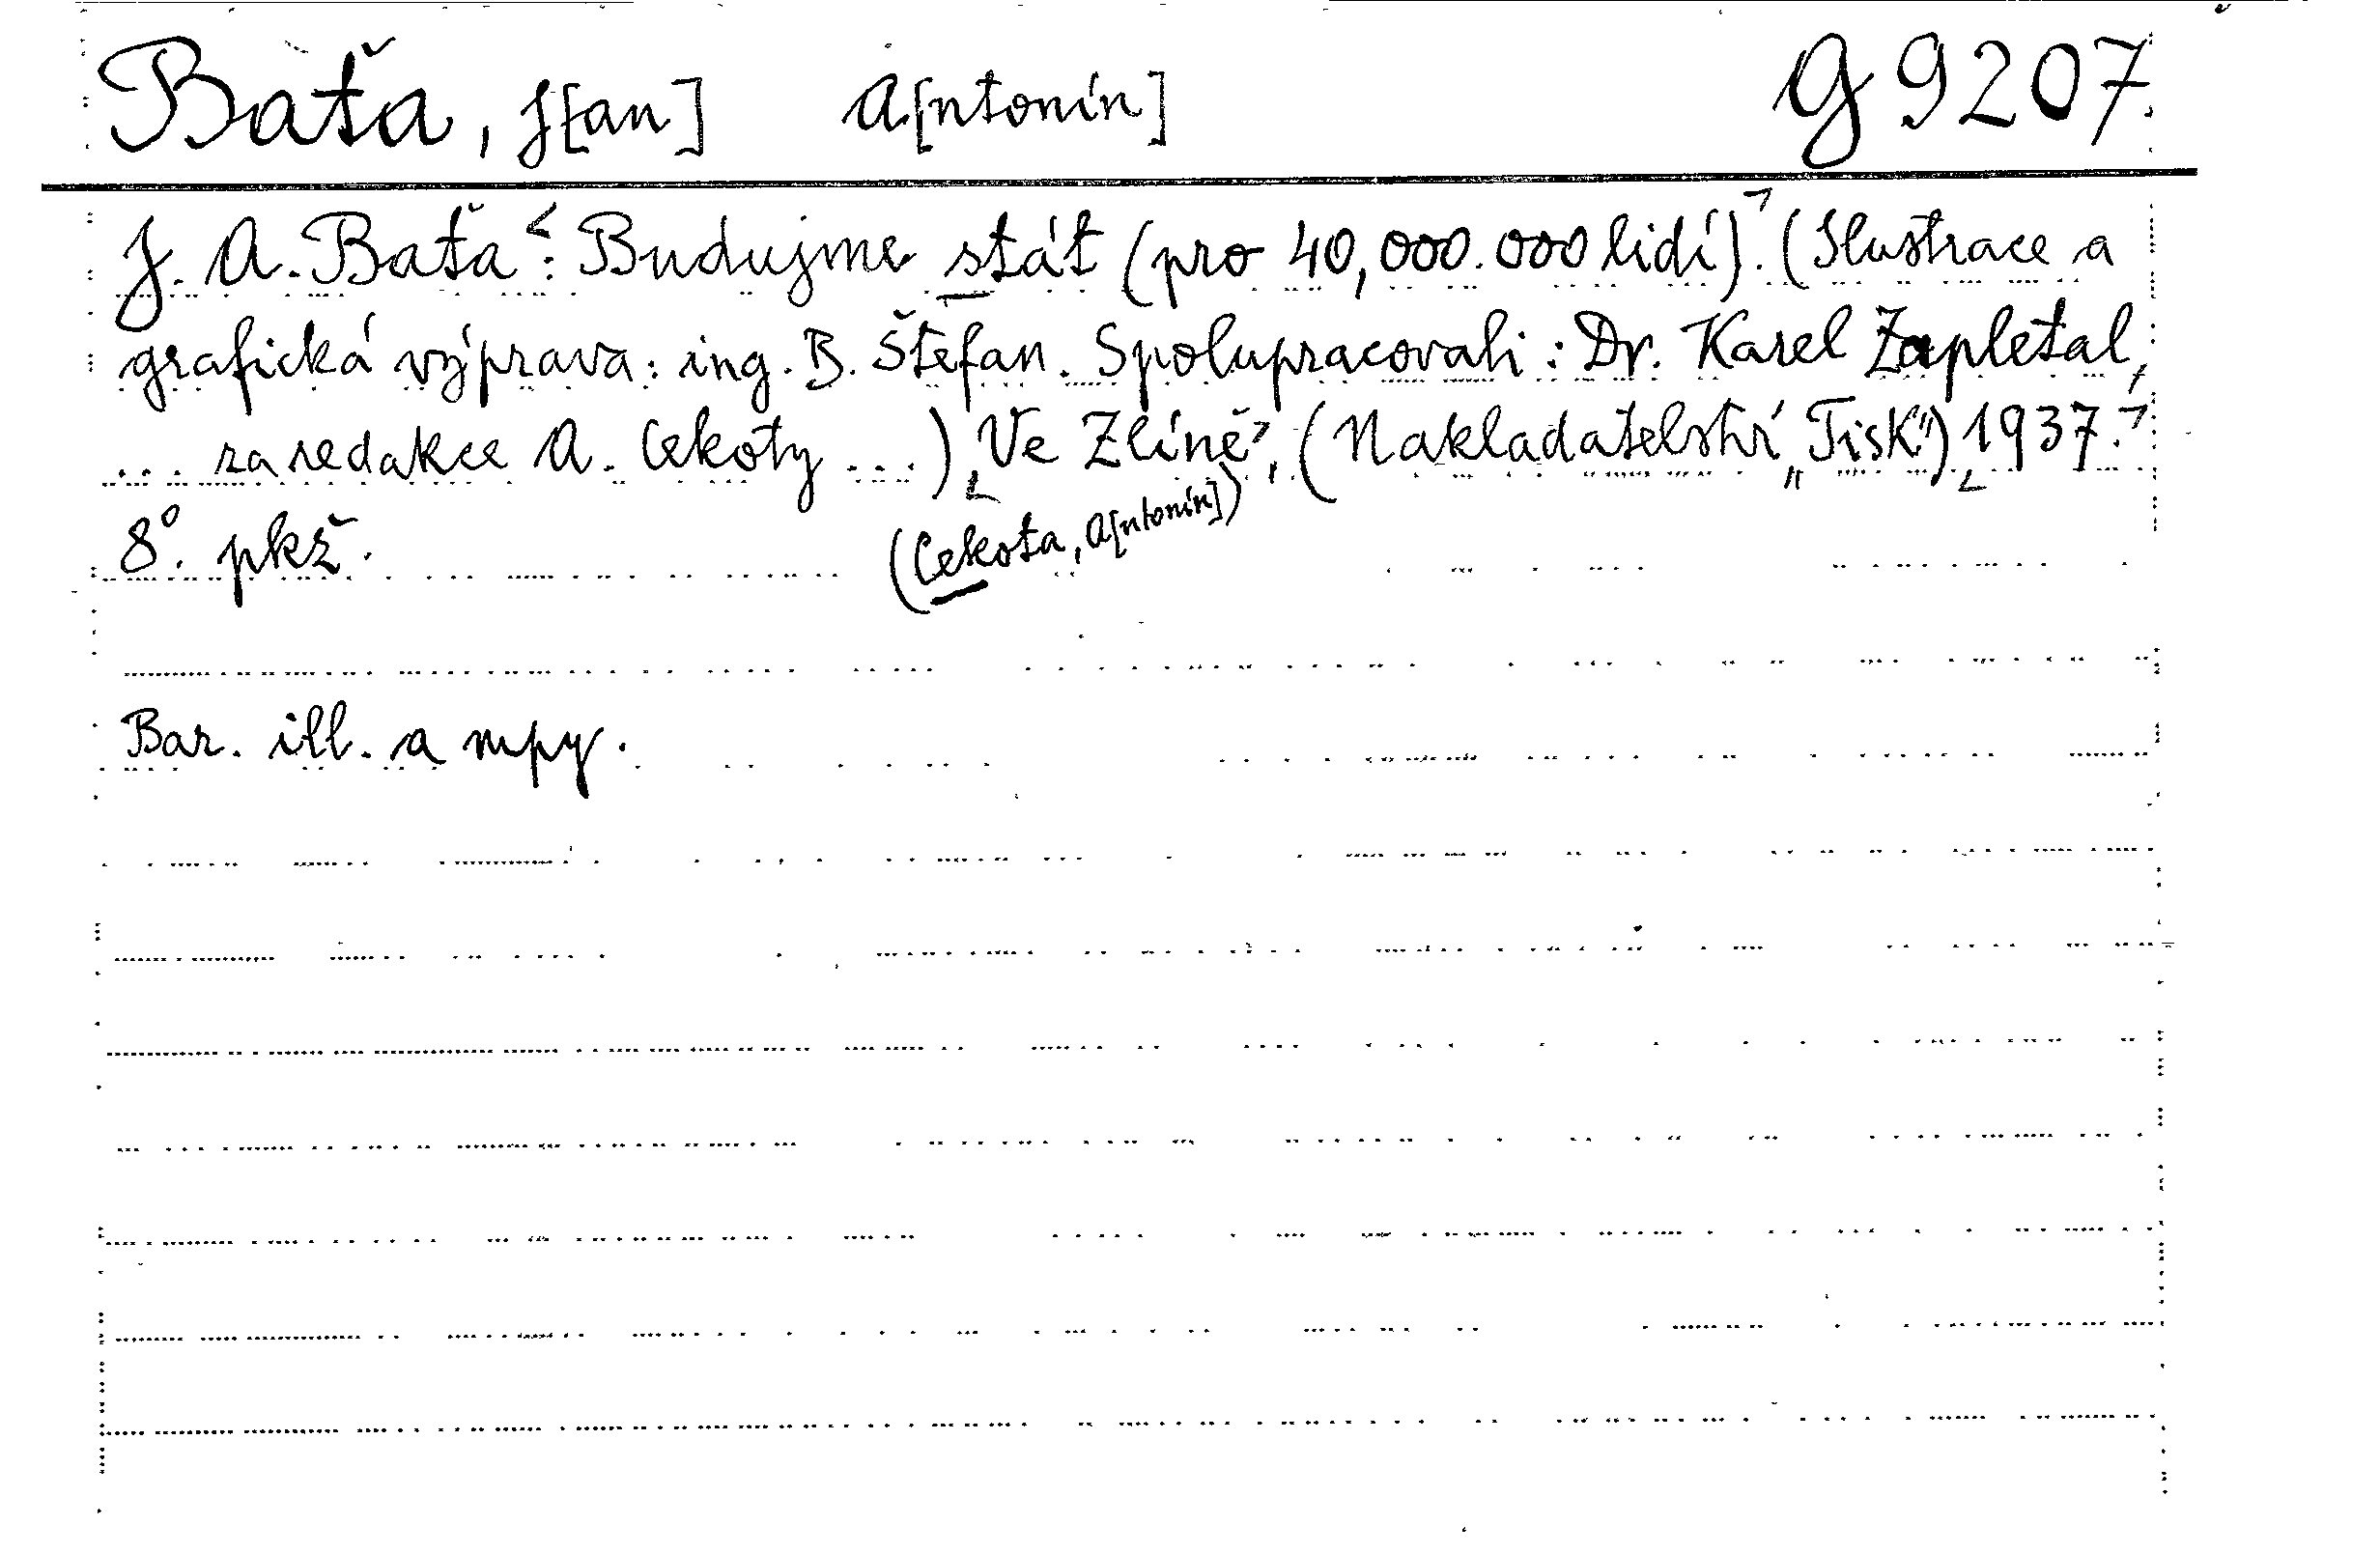 Baťa, J[an] A[ntonín] G 9207.
J. A. Baťa: Budujme stát (pro 40,000.000 lidí). (Ilustrace a
grafická výprava: ing. B. Štefan. Spolupracovali: Dr. Karel Zapletal,
... za redakce A. Cekoty ...) Ve Zlíně, (Nakladatelství „Tisk") 1937.
8°. pkž.
(Cekota, A[ntonín])
Bar. ill. a mpy.